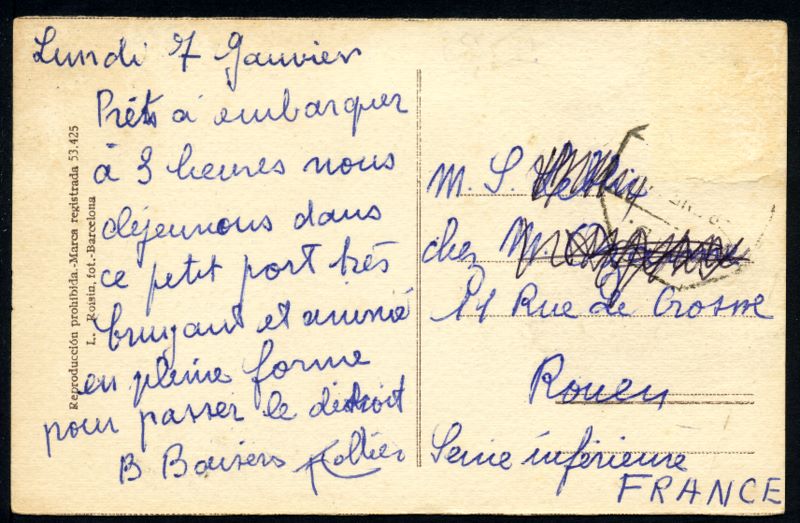 Lundi 7 Janvier
Prêts à embarquer
à 3 heures nous
déjeunons dans
ce petit port très
bruyant et animé
en pleine forme
pour passer le détroit
B Baisers
Reproducción prohibida.-Marca registrada 53.425
L. Roisin, fot.-Barcelona
M. S.
chez M.
11 Rue de Crosne
Rouen
Seine inférieure
FRANCE